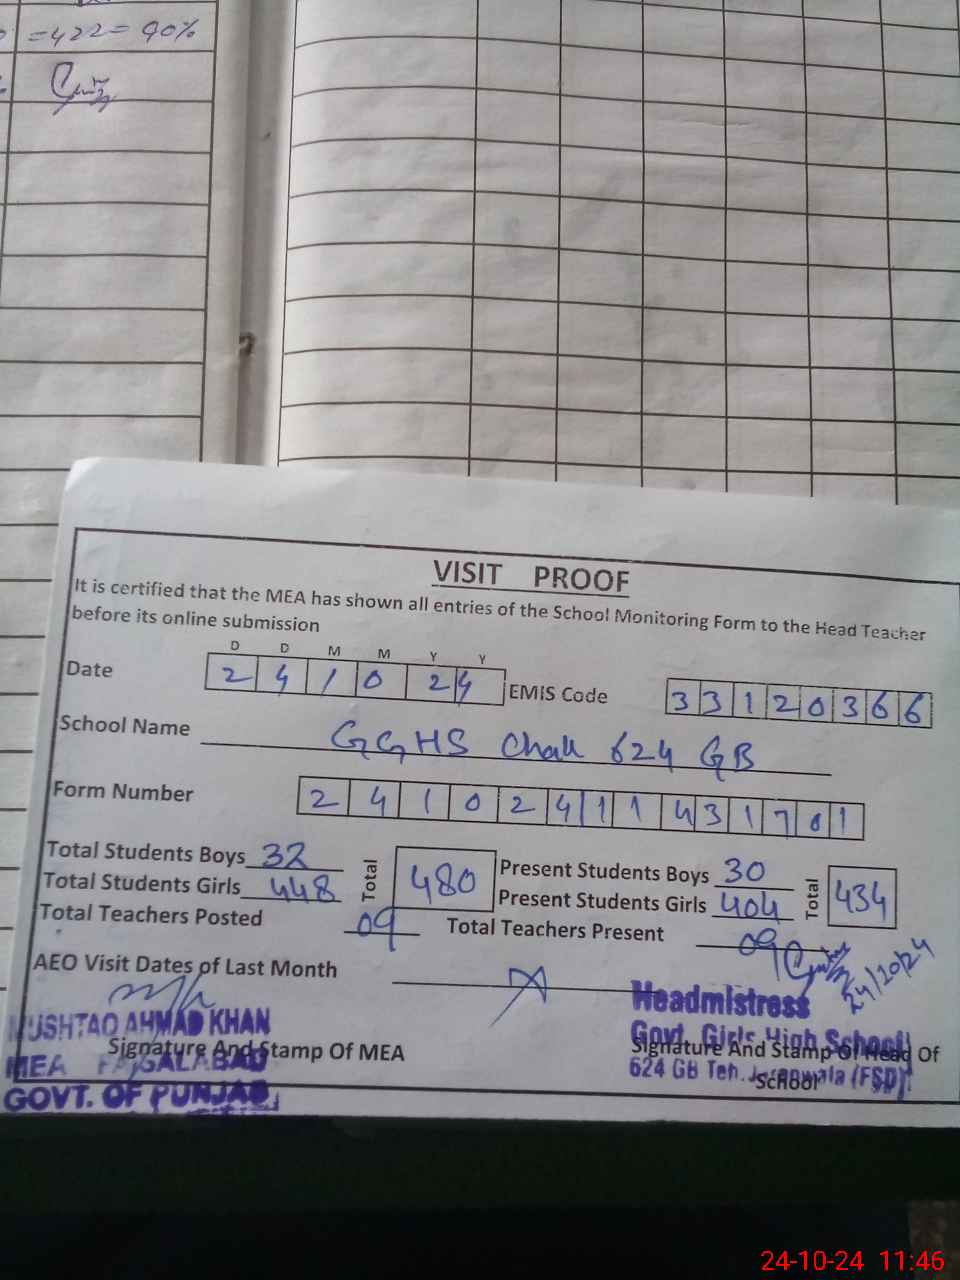 =422= 90%
VISIT PROOF
It is certified that the MEA has shown all entries of the School Monitoring Form to the Head Teacher
before its online submission
D D M M Y Y
Date 2 4 1 0 2 4 EMIS Code 3 3 1 2 0 3 6 6
School Name GGHS Chak 624 GB
Form Number 2 4 1 0 2 4 1 1 4 3 1 7 0 1
Total Students Boys 32 Total 480 Present Students Boys 30 Total 434
Total Students Girls 448 Present Students Girls 404
Total Teachers Posted 09 Total Teachers Present 09
24/10/24
AEO Visit Dates of Last Month
MUSHTAQ AHMAD KHAN
MEA FAISALABAD
GOVT. OF PUNJAB
Signature And Stamp Of MEA
Headmistress
Govt. Girls High School
624 GB Teh. Jaranwala (FSD)
Signature And Stamp Of Head Of
School
24-10-24 11:46